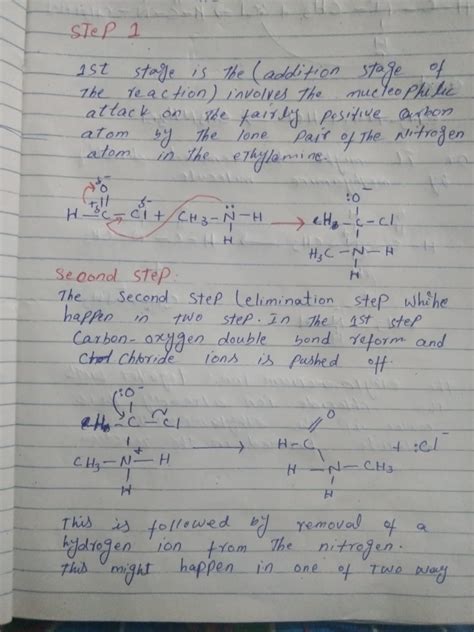 STEP 1
1st stage is the (addition stage of
the reaction) involves the nucleophilic
attack on the fairly positive carbon
atom by the lone pair of the Nitrogen
atom in the ethylamine.
H-C-Cl + CH3-N-H → C-Cl
H3C-N-H
Second step.
The second step (elimination step whihe
happen in two step. In the 1st step
Carbon-oxygen double bond reform and
chloride ions is pushed off.
:O⁻
C-Cl
CH3-N⁺-H → H-C + :Cl⁻
H H-N-CH3
H
This is followed by removal of a
hydrogen ion from the nitrogen.
This might happen in one of two way